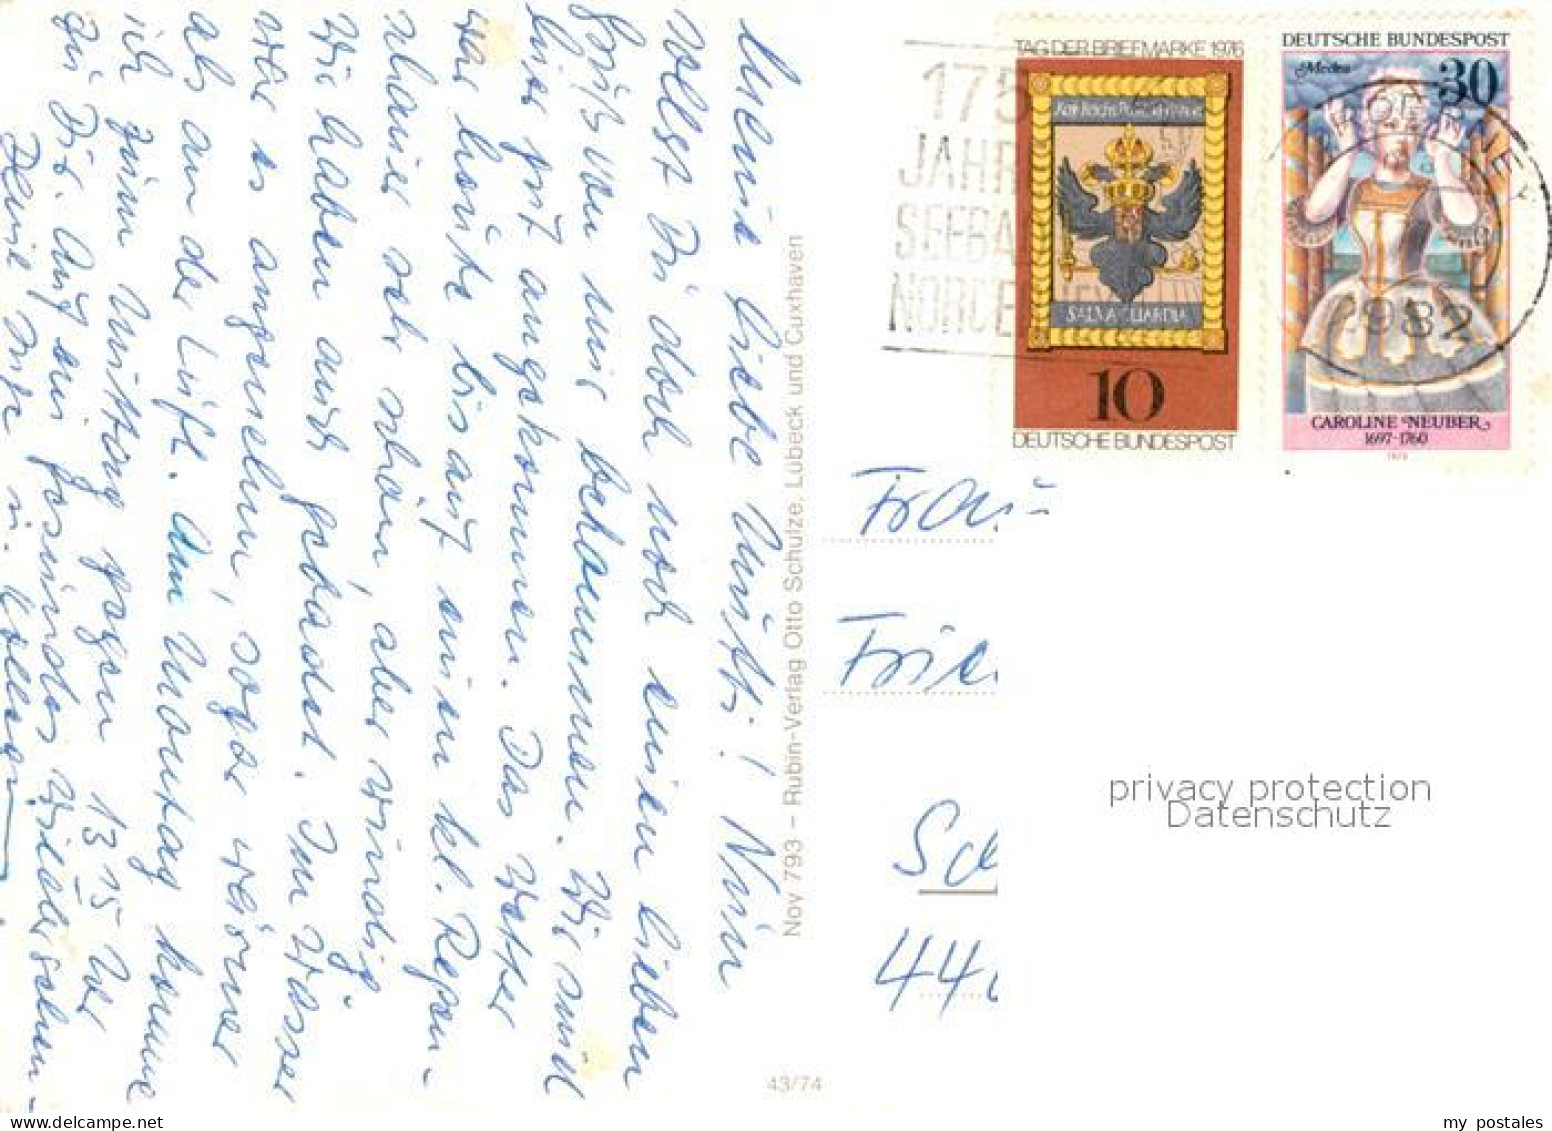 Meine liebe Mutti! Nun
sollst Du doch noch einen lieben
Gruß von mir bekommen. Wir sind
hier gut angekommen. Das Wetter
war heute bis auf einen kl. Regen-
schauer sehr schön, aber windig.
Wir haben auch gebadet. Im Wasser
war es angenehm, sogar wärmer
als an der Luft. Am Montag komme
ich zum Mittag gegen 13 15 Uhr
zu Dir. Auf ein gesundes Wiedersehen
Deine
Noy 793 – Rubin-Verlag Otto Schulze, Lübeck und Cuxhaven
43/74
175
JAHR
SEEBA
NORDE
TAG DER BRIEFMARKE 1976
SALVA GUARDIA
10
DEUTSCHE BUNDESPOST
DEUTSCHE BUNDESPOST
Medea
30
1982
CAROLINE NEUBER
1697-1760
1976
Frau
Frie
Sc
44
privacy protection
Datenschutz
my postales